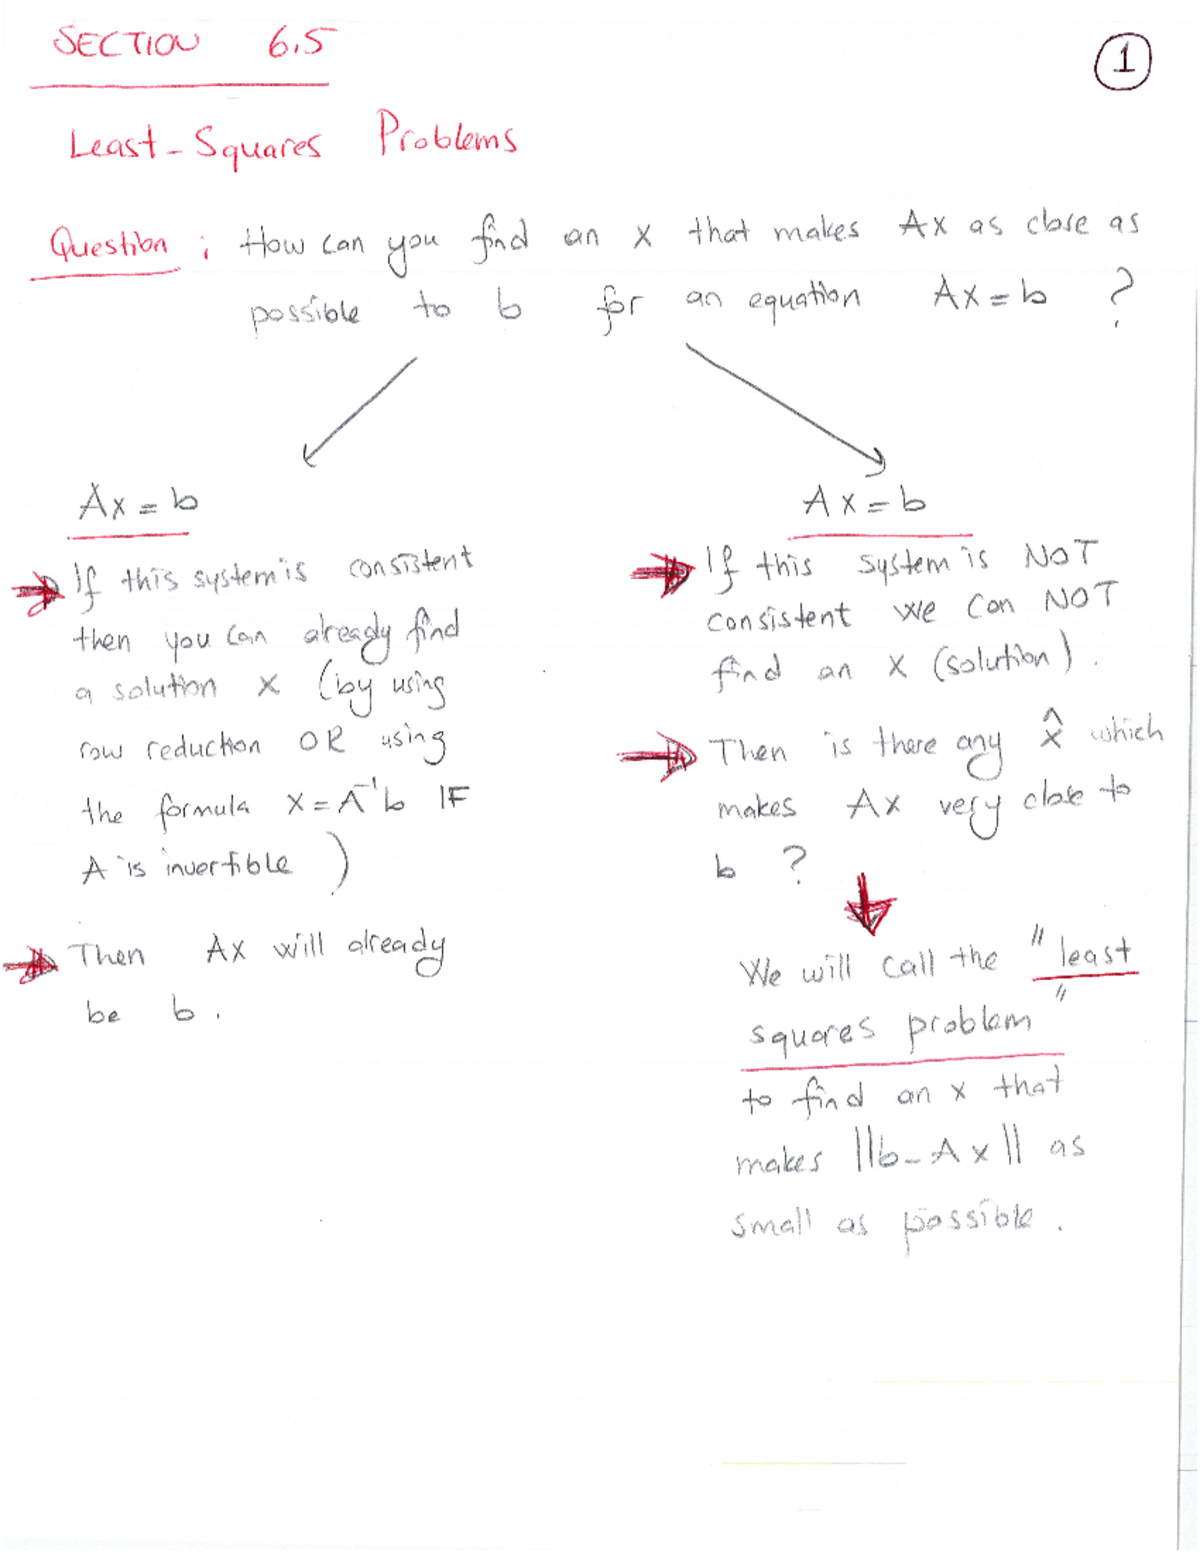 SECTION 6.5
1
Least-Squares Problems
Question ; How can you find an x that makes Ax as close as
possible to b for an equation Ax=b ?
Ax=b
If this system is consistent
then you can already find
a solution x (by using
row reduction OR using
the formula x=A⁻¹b IF
A is invertible)
Then Ax will already
be b.
Ax=b
If this system is NOT
consistent we can NOT
find an x (solution).
Then is there any x̂ which
makes Ax very close to
b ?
We will call the "least
squares problem"
to find an x that
makes ||b-Ax|| as
small as possible.